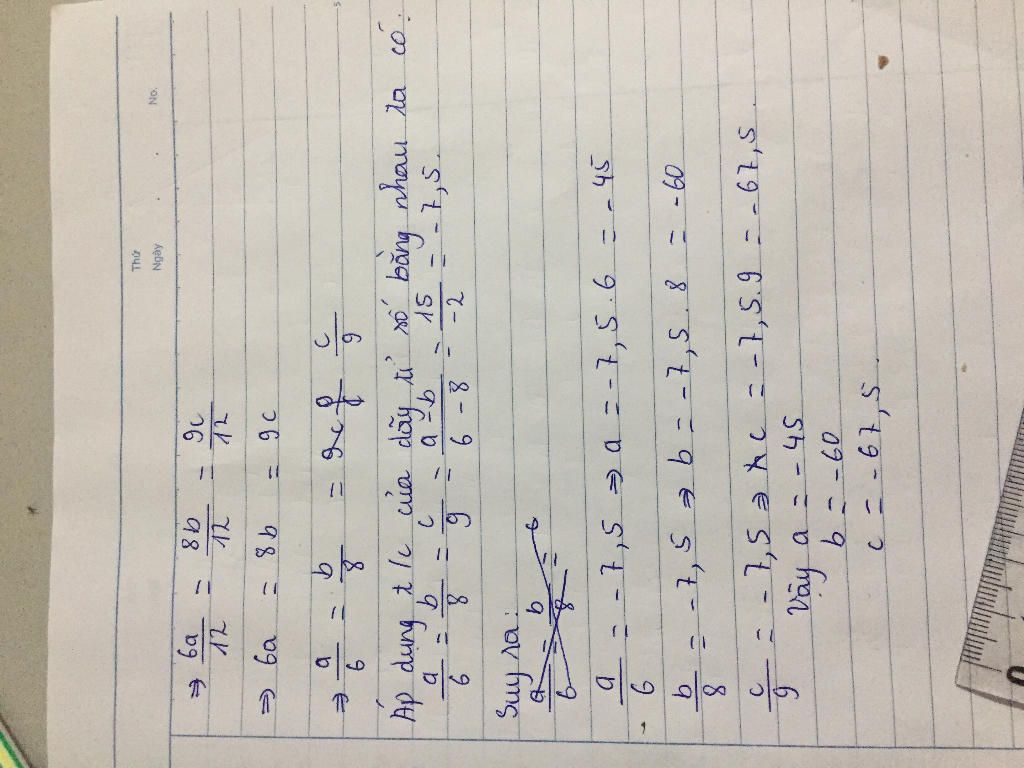 Thứ
Ngày
No.
⇒ 6a/12 = 8b/12 = 9c/12
⇒ 6a = 8b = 9c
⇒ a/6 = b/8 = c/9
Áp dụng t/c của dãy tỉ số bằng nhau ta có:
a/6 = b/8 = c/9 = a-b/6-8 = 15/-2 = -7,5.
Suy ra:
a/6 = -7,5 ⇒ a = -7,5.6 = -45
b/8 = -7,5 ⇒ b = -7,5.8 = -60
c/9 = -7,5 ⇒ c = -7,5.9 = -67,5.
Vậy a = -45
b = -60
c = -67,5.
0